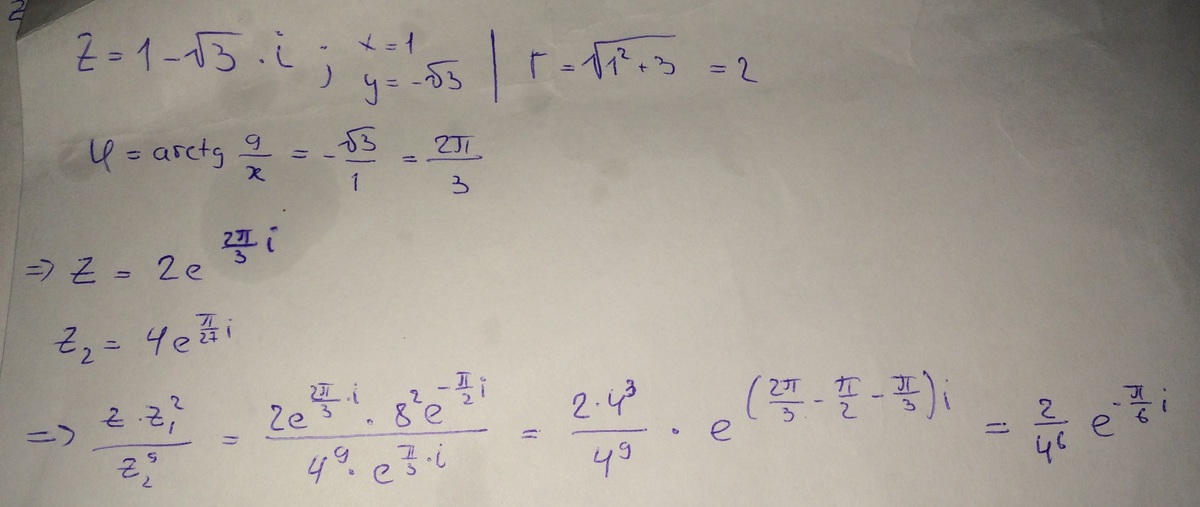 2
Z = 1 - √3 · i ; x = 1 y = -√3 | r = √(1² + 3) = 2
φ = arctg y/x = - √3/1 = 2π/3
=> Z = 2e^(2π/3 i)
Z₂ = 4e^(π/27 i)
=> (z · z₁²)/(z₂⁹) = (2e^(2π/3 · i) · 8²e^(-π/2 i))/(4⁹ · e^(π/3 · i)) = (2 · 4³)/4⁹ · e^((2π/3 - π/2 - π/3)i) = 2/4⁶ e^(-π/6 i)